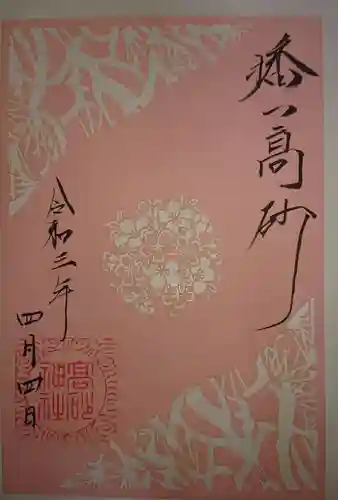 播州高砂
令和三年
四月四日
高砂
神社